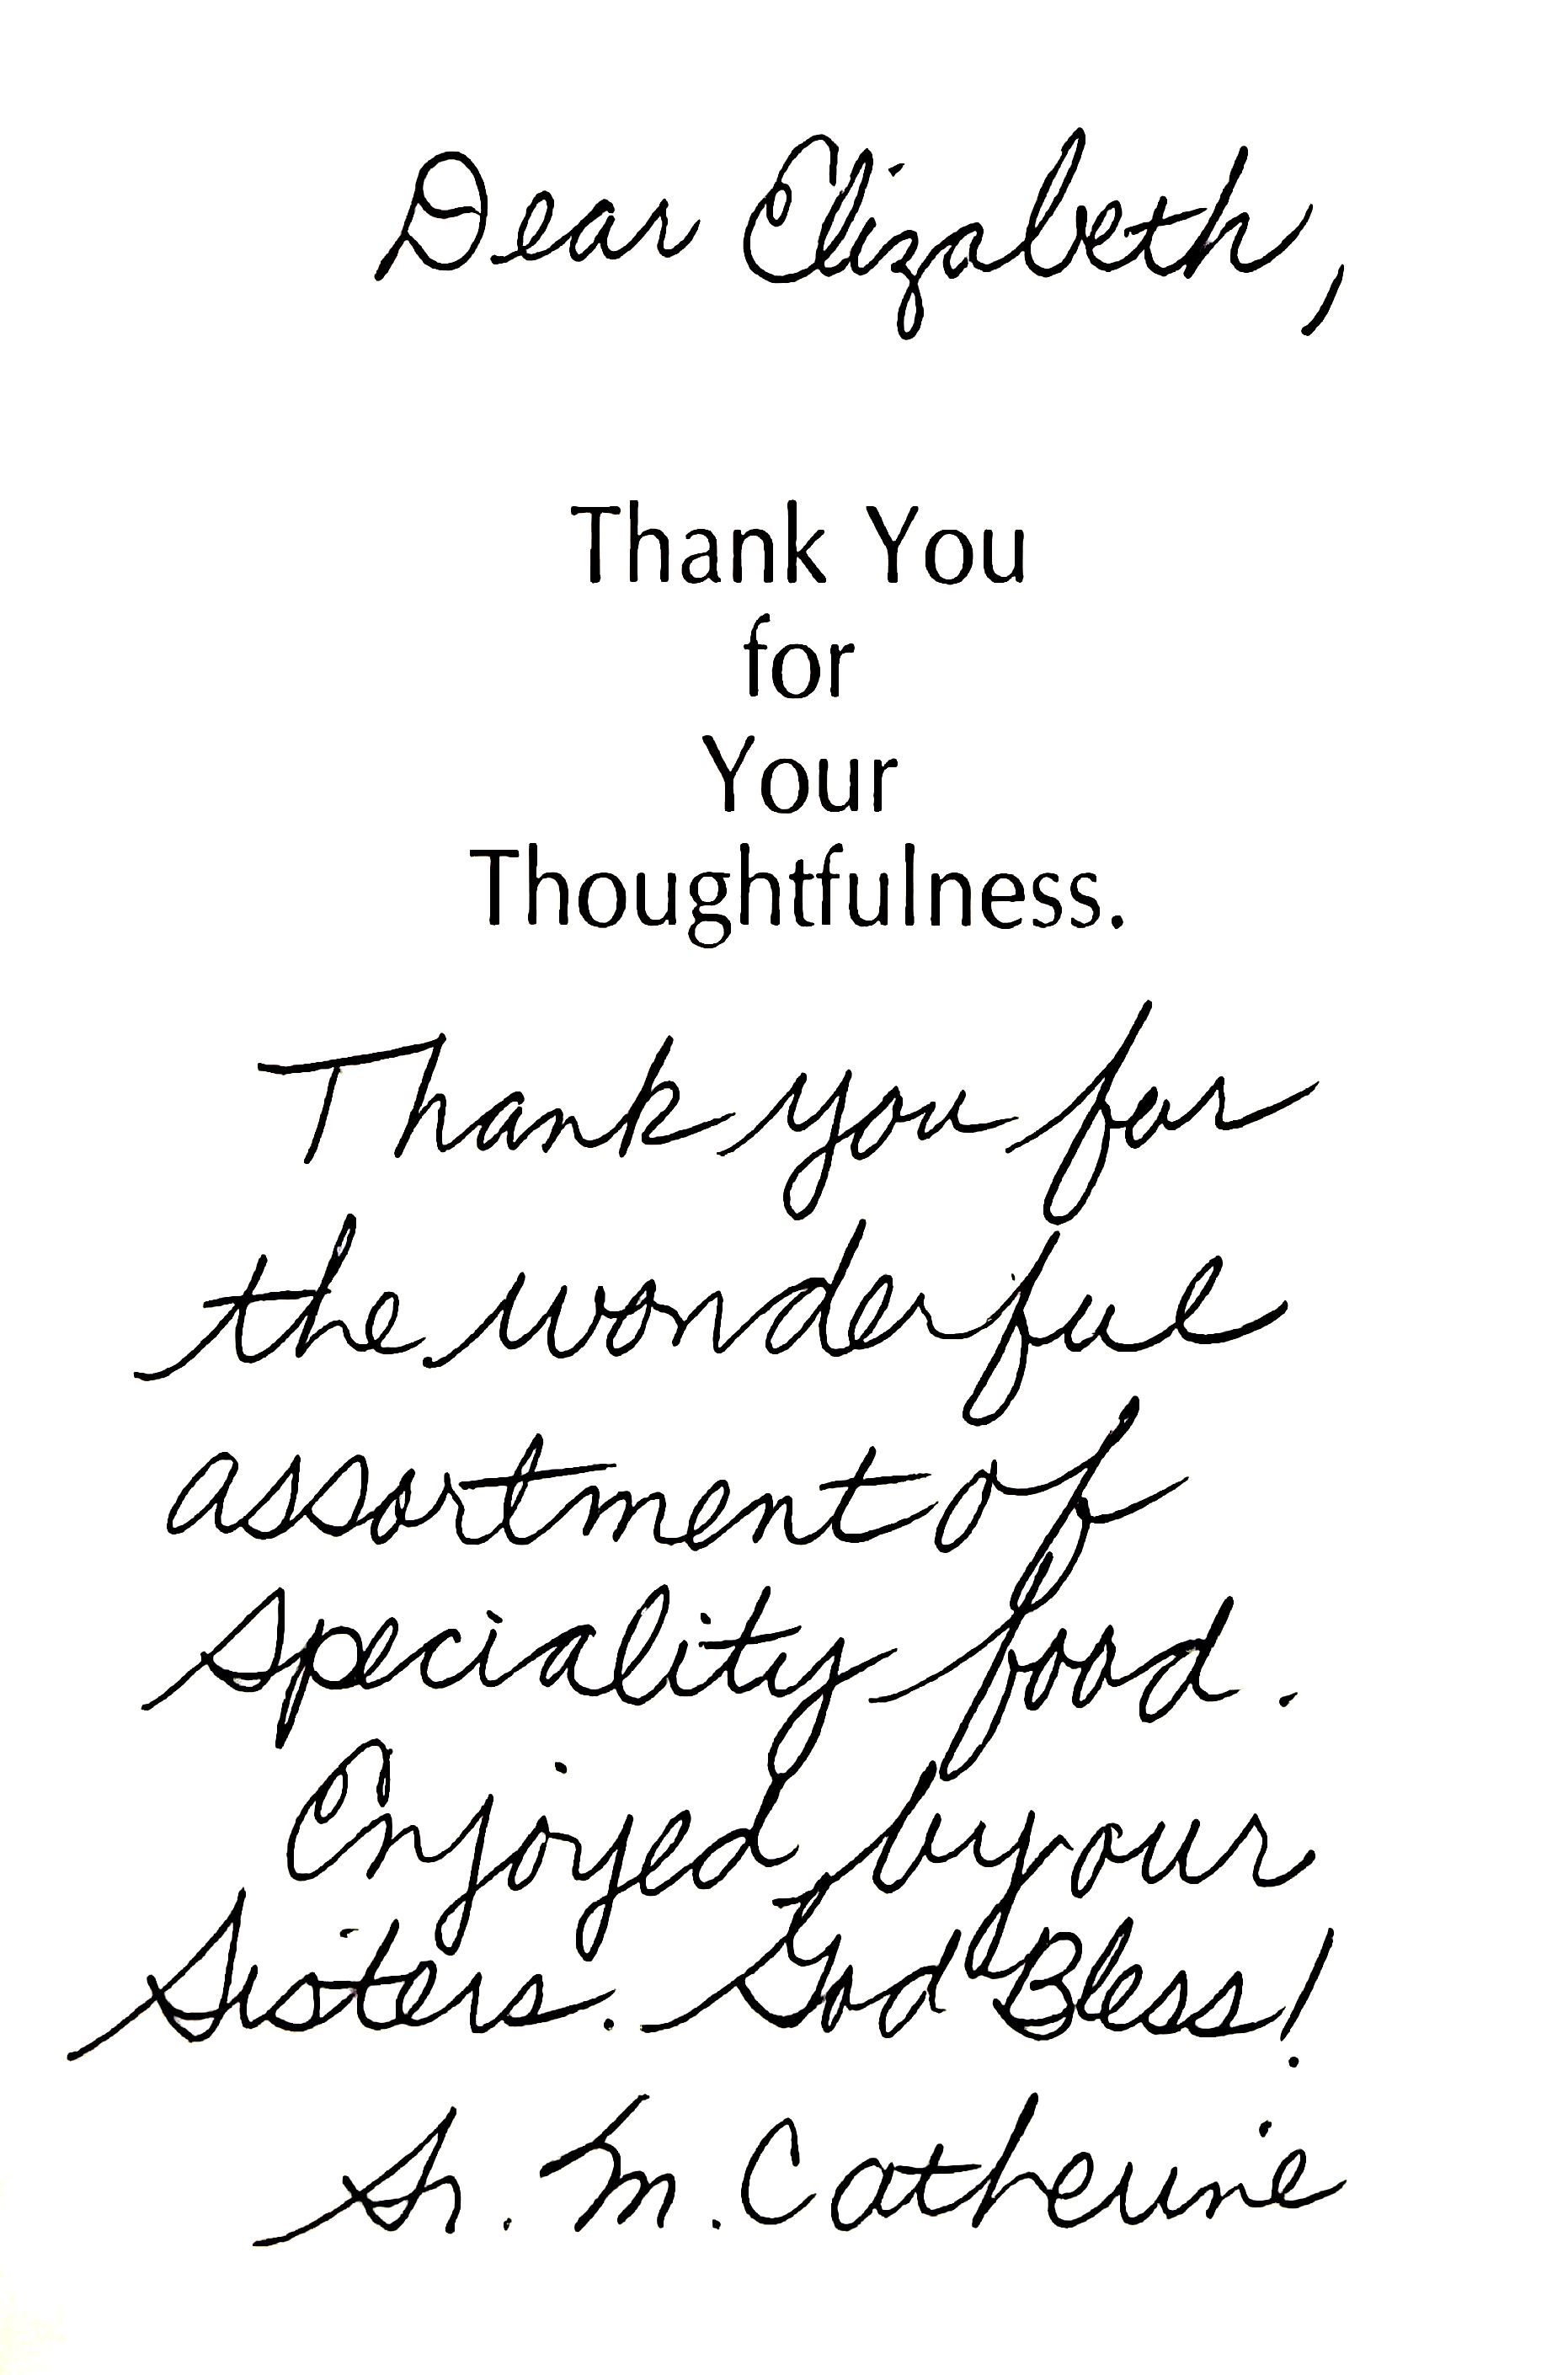 Dear Elizabeth,
Thank You
for
Your
Thoughtfulness.
Thank you for
the wonderful
assortment of
speciality food.
Enjoyed by our
Sisters. God Bless!
Sr. M. Catherine